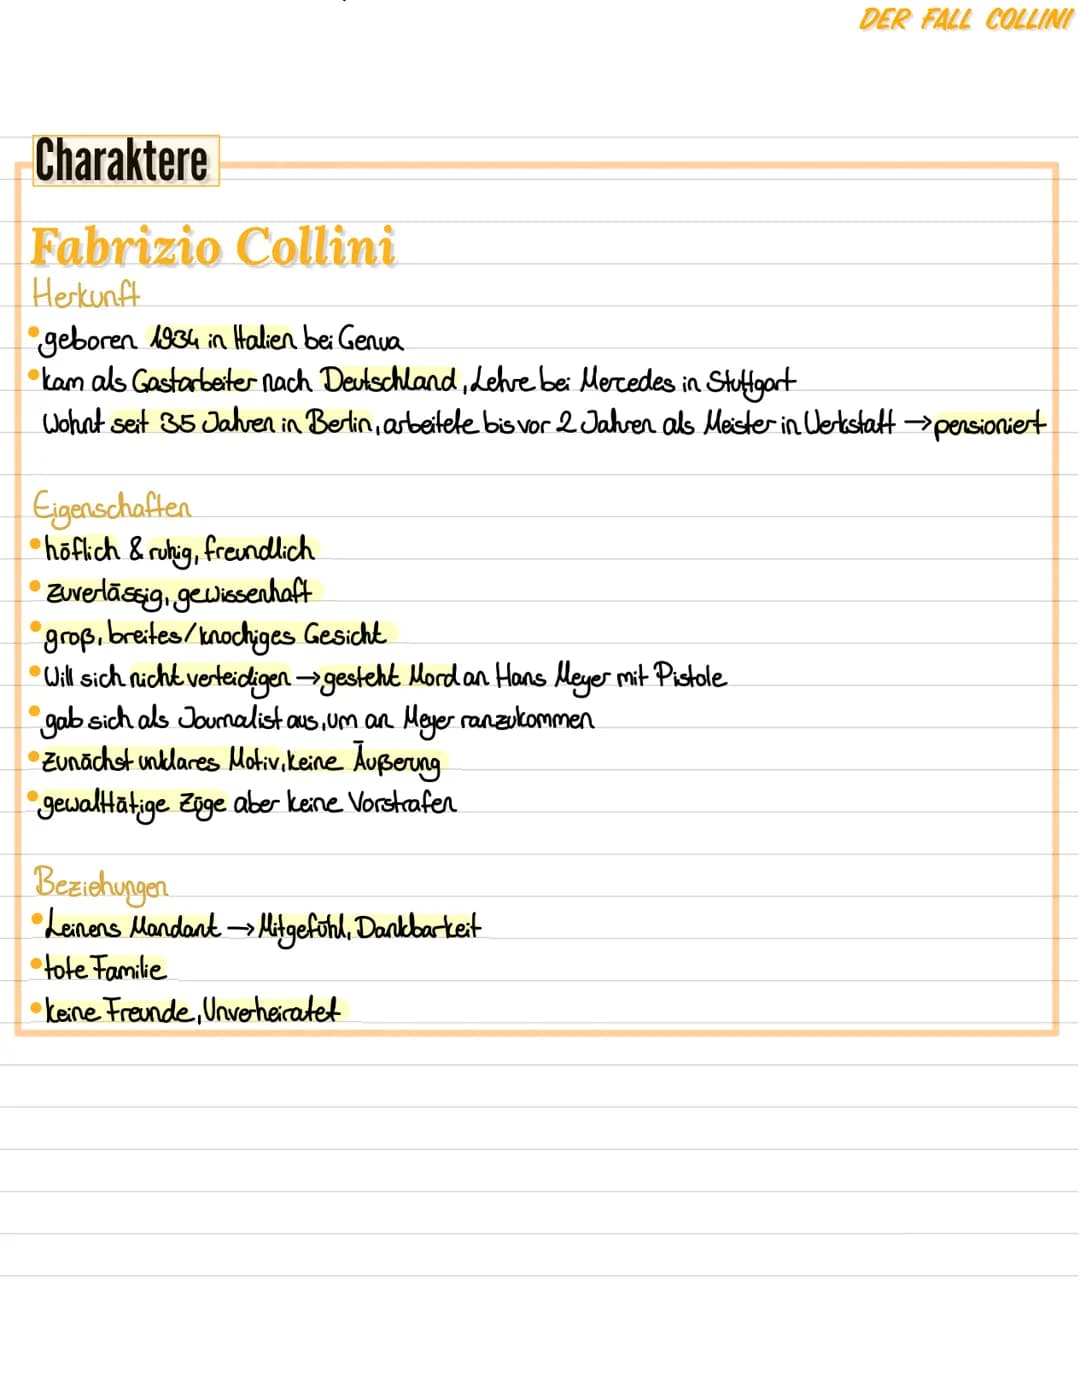 DER FALL COLLINI
Charaktere
Fabrizio Collini
Herkunft
• geboren 1934 in Italien bei Genua
• kam als Gastarbeiter nach Deutschland, Lehre bei Mercedes in Stuttgart
Wohnt seit 35 Jahren in Berlin, arbeitete bis vor 2 Jahren als Meister in Werkstatt → pensioniert
Eigenschaften
• höflich & ruhig, freundlich
• zuverlässig, gewissenhaft
• groß, breites/knochiges Gesicht
• Will sich nicht verteidigen → gesteht Mord an Hans Meyer mit Pistole
• gab sich als Journalist aus, um an Meyer ranzukommen
• Zunächst unklares Motiv, keine Äußerung
• gewalttätige Züge aber keine Vorstrafen
Beziehungen
• Leinens Mandant → Mitgefühl, Dankbarkeit
• tote Familie
• keine Freunde, Unverheiratet